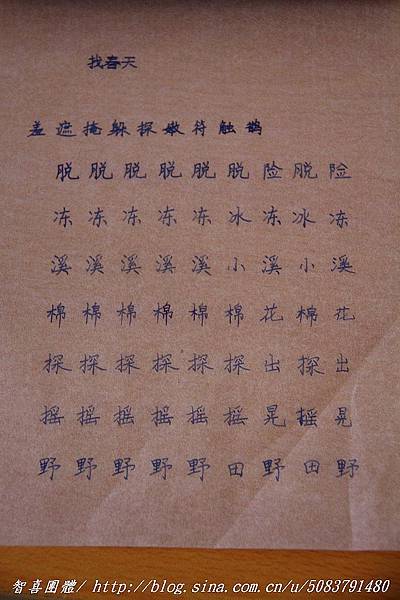 找春天
羞遮掩躲探嫩符触鹊
脱脱脱脱脱脱险脱险
冻冻冻冻冻冰冻冰冻
溪溪溪溪溪小溪小溪
棉棉棉棉棉棉花棉花
探探探探探探出探出
摇摇摇摇摇摇晃摇晃
野野野野野田野田野
智喜團體/ http://blog.sina.com.cn/u/5083791480